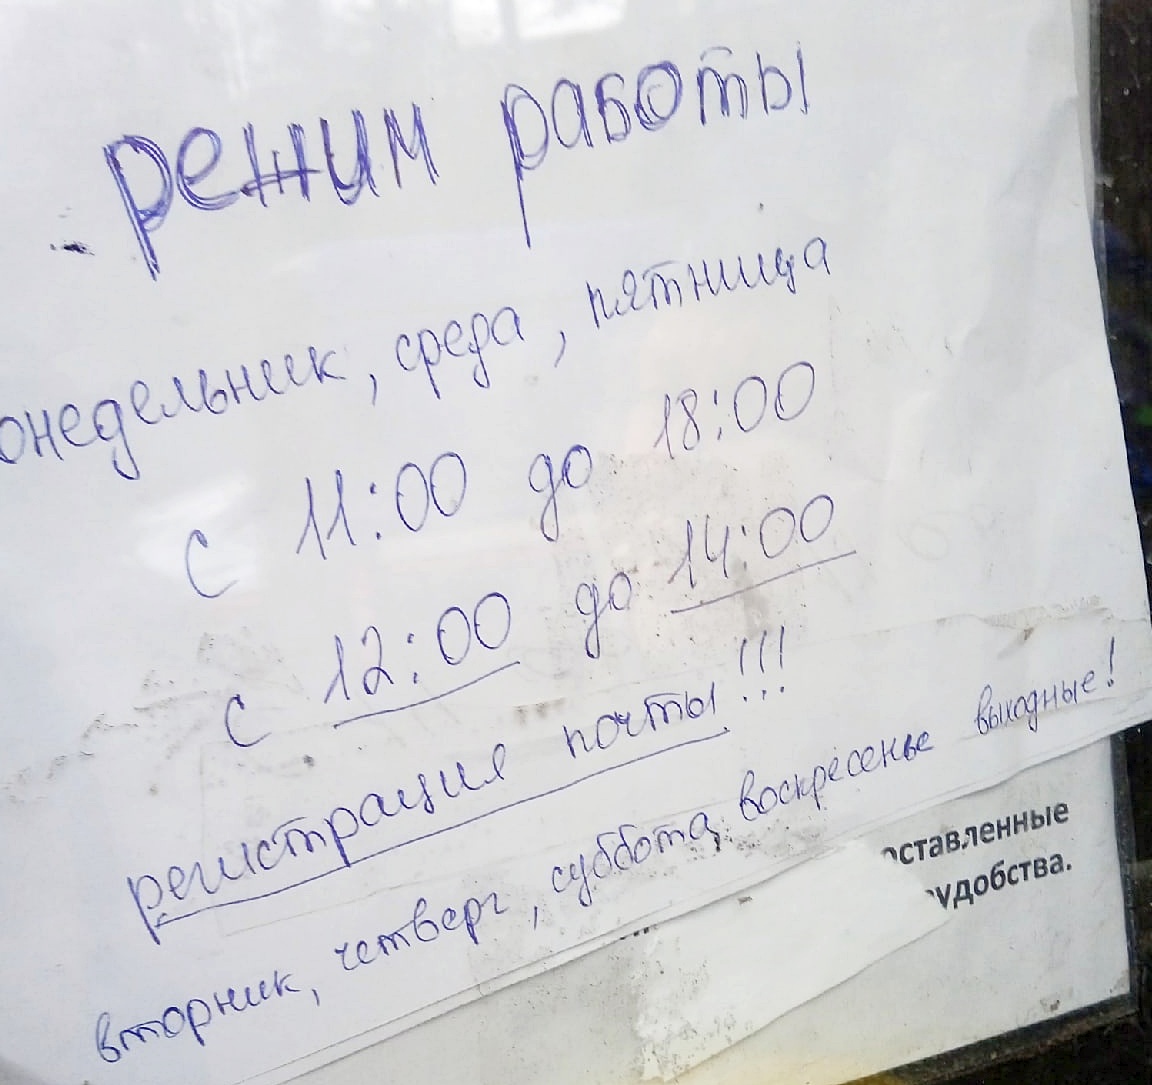 режим работы
онедельник, среда, пятница
с 11:00 до 18:00
с 12:00 до 14:00
регистрация почты!!!
вторник, четверг, суббота, воскресенье выходные!
оставленные
удобства.